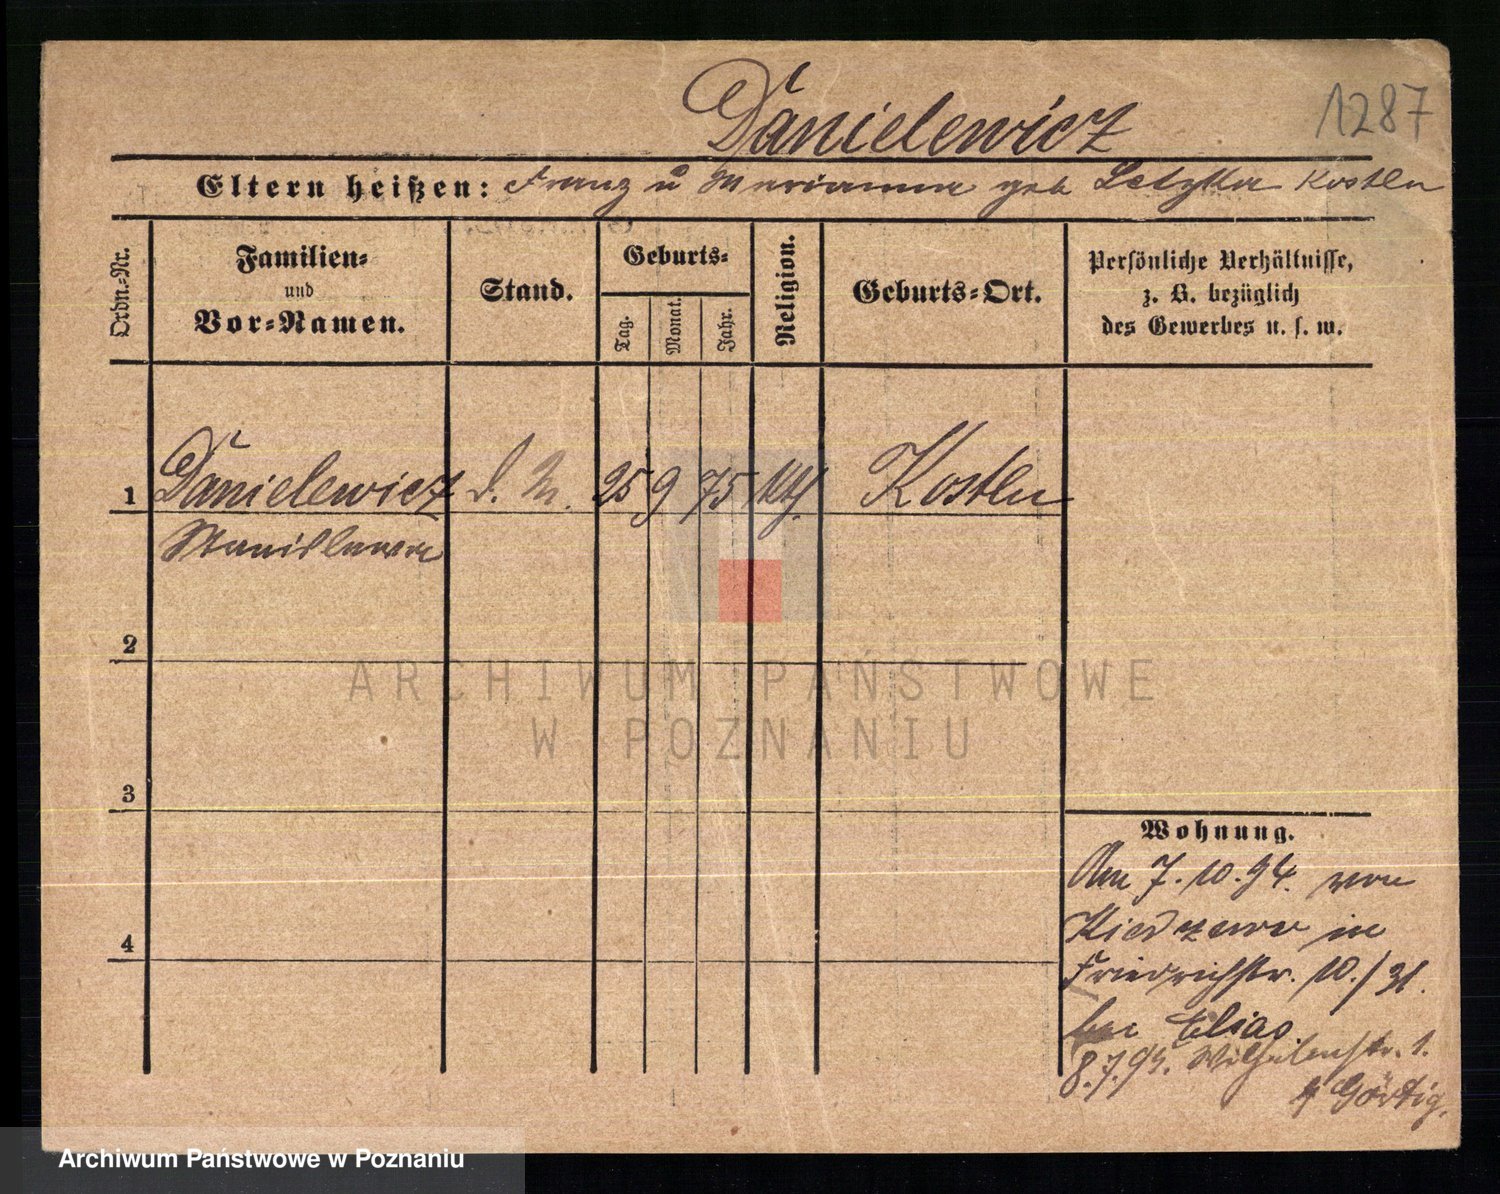 Danielewicz
1287
Eltern heißen: Franz u Marianna geb Kosten
Ordn.-Nr.
Familien-
und
Vor-Namen.
Stand.
Geburts-
Tag.
Monat.
Jahr.
Religion.
Geburts-Ort.
Persönliche Verhältnisse,
z. B. bezüglich
des Gewerbes u. s. w.
1 Danielewicz d. M. 25 9 75 kth. Kosten
Stanislawa
2
ARCHIWUM PAŃSTWOWE
W POZNANIU
3
4
Wohnung.
Am 7.10.94. von
in
Friedrichstr. 10./31.
bei Elias
8.7.95. Wilhelmstr. 1.
Görtig.
Archiwum Państwowe w Poznaniu